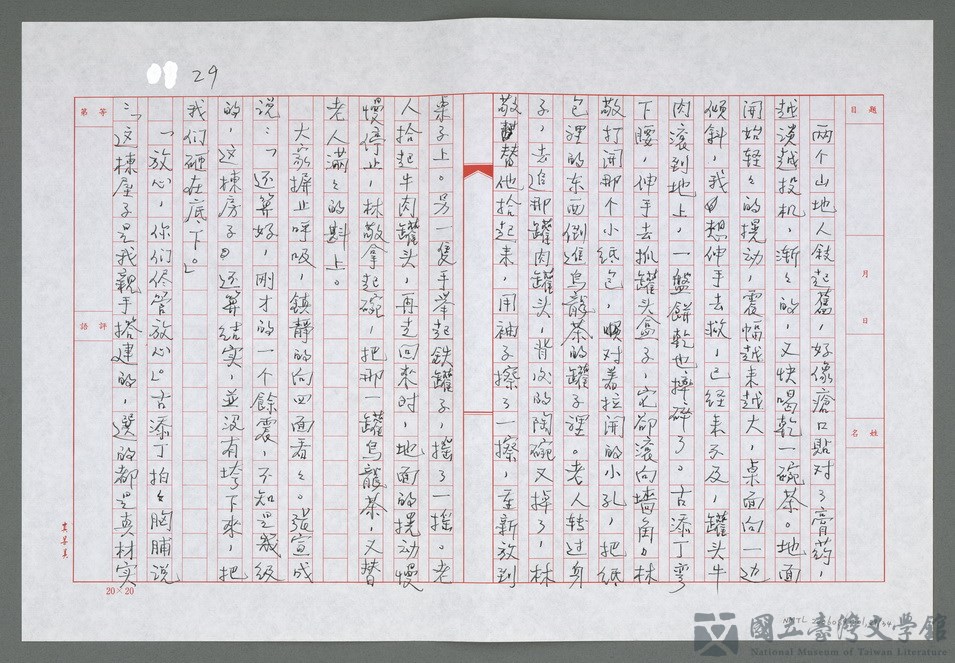 29
題目
月
日
姓名
等第
評語
两个山地人敍起舊，好像瘡口貼对了膏药，
越潰越投机，漸々的，又快喝乾一碗茶。地面
開始轻々的摇动，震幅越来越大，桌面向一边
倾斜，我想伸手去救，已经来不及，罐头牛
肉滚到地上，一盤餅乾也摔碎了。古添丁弯
下腰，伸手去抓罐头盒子，它却滚向墙角。林
敬打開那个小纸包，对着拉開的小孔，把纸
包裡的东西倒進烏龍茶的罐子裡。老人转过身
子，去追那罐肉罐头，背后的陶碗又掉了，林
敬替他拾起来，用袖子擦了一擦，重新放到
桌子上。另一隻手举起鉄罐子，摇了一摇。老
人拾起牛肉罐头，再走回来时，地面的摇动慢
慢停止，林敬拿起碗，把那一罐烏龍茶，又替
老人满々的斟上。
大家摒止呼吸，鎮静的向四面看々。張宣成
说：「还算好，刚才的一个餘震，不知是幾级
的，这棟房子还算结实，並没有垮下来，把
我们砸在底下。」
「放心，你们尽管放心」。古添丁拍々胸脯说
：「这棟屋子是我親手搭建的，選的都是真材实
20×20
國立臺灣文學館
National Museum of Taiwan Literature